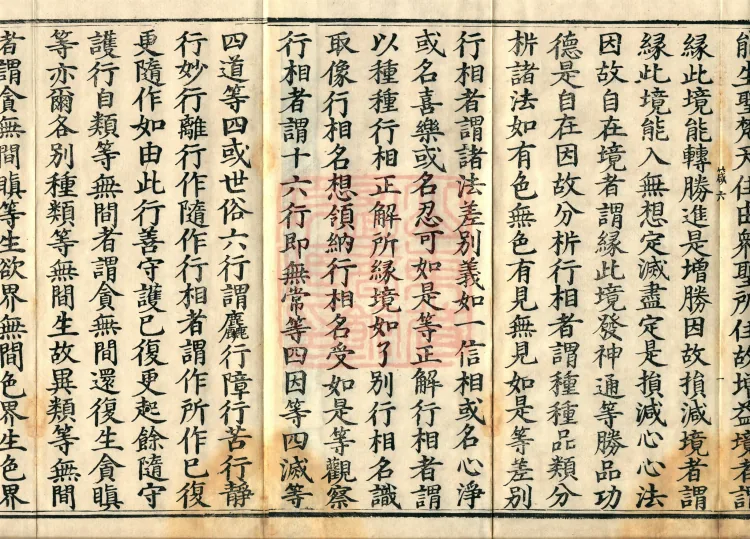 能生聖梵天住由衆聖所住故增益境者謂
緣此境能轉勝進是增勝因故損減境者謂
緣此境能入無想定滅盡定是損減心心法
因故自在境者謂緣此境發神通等勝品功
德是自在因故分析行相者謂種種品類分
析諸法如有色無色有見無見如是等差別
行相者謂諸法差別義如一信相或名心淨
或名喜樂或名忍可如是等正解行相者謂
以種種行相正解所緣境如了別行相名識
取像行相名想領納行相名受如是等觀察
行相者謂十六行即無常等四因等四滅等
四道等四或世俗六行謂麤行障行苦行靜
行妙行離行作隨作行相者謂作所作已復
更隨作如由此行善守護已復更起餘隨守
護行自類等無間者謂貪無間還復生貪瞋
等亦爾各別種類等無間生故異類等無間
者謂貪無間瞋等生欲界無間色界生色界